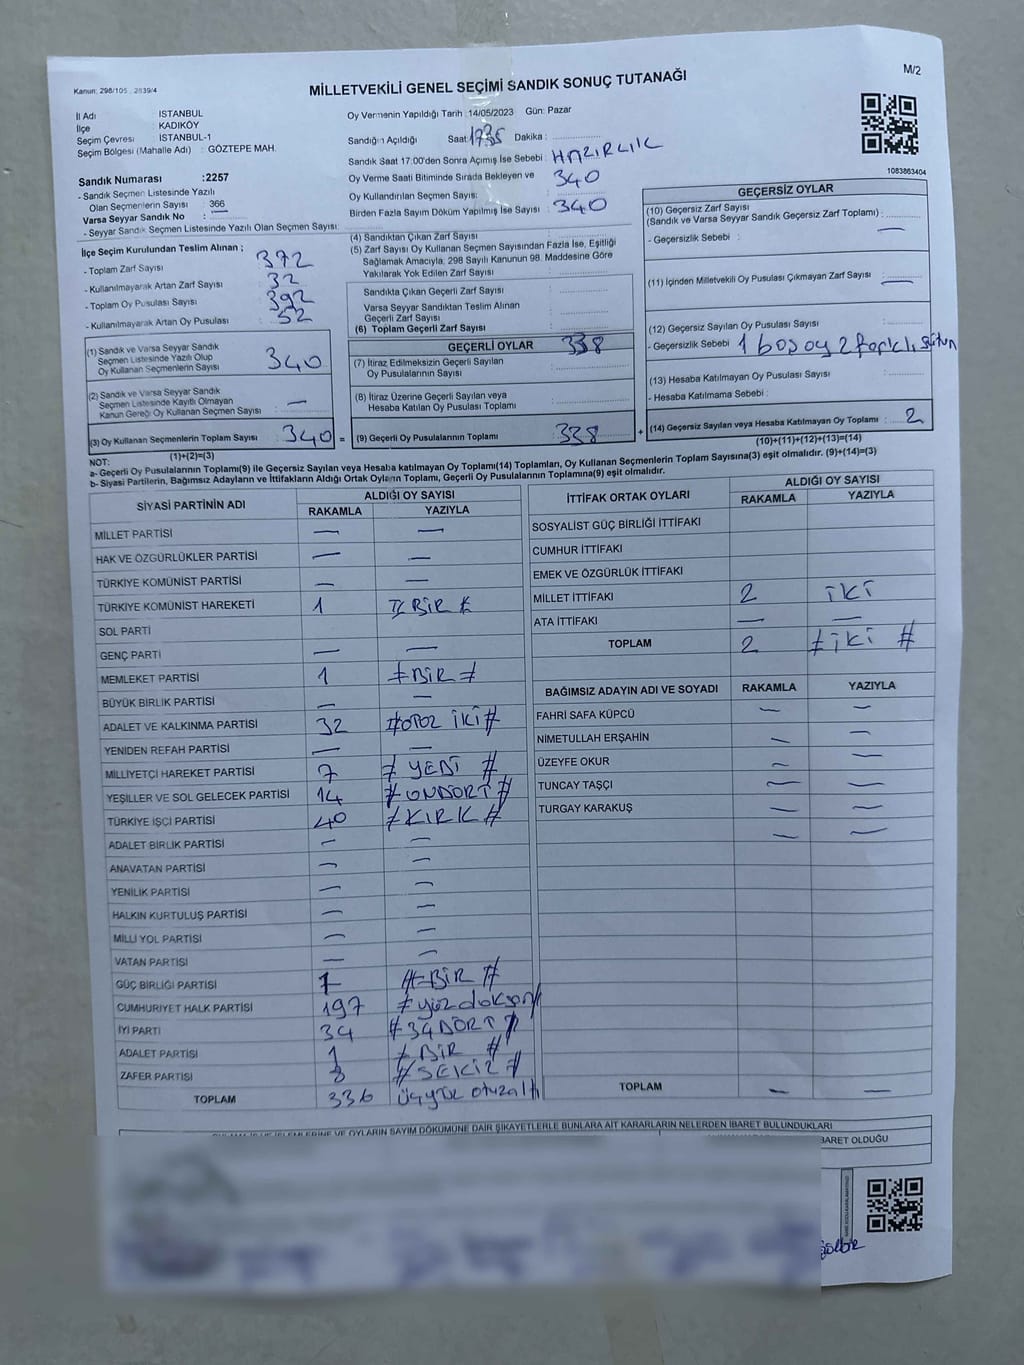 Kanun: 298/105 , 2839/4
MİLLETVEKİLİ GENEL SEÇİMİ SANDIK SONUÇ TUTANAĞI
M/2
İl Adı İSTANBUL
İlçe : KADIKÖY
Seçim Çevresi İSTANBUL-1
Seçim Bölgesi (Mahalle Adı) : GÖZTEPE MAH.
Oy Vermenin Yapıldığı Tarih :14/05/2023 Gün: Pazar
Sandığın Açıldığı Saat: 1735 Dakika :
Sandık Saat 17:00'den Sonra Açımış İse Sebebi : HAZIRLIK
Oy Verme Saati Bitiminde Sırada Bekleyen ve
Oy Kullandırılan Seçmen Sayısı: 340
Birden Fazla Sayım Döküm Yapılmış İse Sayısı : 340
1083863404
Sandık Numarası :2257
- Sandık Seçmen Listesinde Yazılı
Olan Seçmenlerin Sayısı : 366
Varsa Seyyar Sandık No : —
- Seyyar Sandık Seçmen Listesinde Yazılı Olan Seçmen Sayısı:
İlçe Seçim Kurulundan Teslim Alınan ;
- Toplam Zarf Sayısı : 372
- Kullanılmayarak Artan Zarf Sayısı : 32
- Toplam Oy Pusulası Sayısı : 392
- Kullanılmayarak Artan Oy Pusulası : 52
(1) Sandık ve Varsa Seyyar Sandık
Seçmen Listesinde Yazılı Olup
Oy Kullanan Seçmenlerin Sayısı : 340
(2) Sandık ve Varsa Seyyar Sandık
Seçmen Listesinde Kayıtlı Olmayan
Kanun Gereği Oy Kullanan Seçmen Sayısı : —
(3) Oy Kullanan Seçmenlerin Toplam Sayısı : 340 =
(1)+(2)=(3)
(4) Sandıktan Çıkan Zarf Sayısı :
(5) Zarf Sayısı Oy Kullanan Seçmen Sayısından Fazla İse, Eşitliği
Sağlamak Amacıyla, 298 Sayılı Kanunun 98. Maddesine Göre
Yakılarak Yok Edilen Zarf Sayısı :
Sandıkta Çıkan Geçerli Zarf Sayısı :
Varsa Seyyar Sandıktan Teslim Alınan
Geçerli Zarf Sayısı :
(6) Toplam Geçerli Zarf Sayısı :
GEÇERLİ OYLAR 338
(7) İtiraz Edilmeksizin Geçerli Sayılan
Oy Pusulalarının Sayısı :
(8) İtiraz Üzerine Geçerli Sayılan veya
Hesaba Katılan Oy Pusulası Toplamı :
(9) Geçerli Oy Pusulalarının Toplamı : 338 +
GEÇERSİZ OYLAR
(10) Geçersiz Zarf Sayısı
(Sandık ve Varsa Seyyar Sandık Geçersiz Zarf Toplamı) :
- Geçersizlik Sebebi : —
(11) İçinden Milletvekili Oy Pusulası Çıkmayan Zarf Sayısı : —
(12) Geçersiz Sayılan Oy Pusulası Sayısı :
- Geçersizlik Sebebi : 1 boş oy 2 farklı sütun
(13) Hesaba Katılmayan Oy Pusulası Sayısı :
- Hesaba Katılmama Sebebi :
(14) Geçersiz Sayılan veya Hesaba Katılmayan Oy Toplamı : 2
(10)+(11)+(12)+(13)=(14)
NOT:
a- Geçerli Oy Pusulalarının Toplamı(9) ile Geçersiz Sayılan veya Hesaba katılmayan Oy Toplamı(14) Toplamları, Oy Kullanan Seçmenlerin Toplam Sayısına(3) eşit olmalıdır. (9)+(14)=(3)
b- Siyasi Partilerin, Bağımsız Adayların ve İttifakların Aldığı Ortak Oyların Toplamı, Geçerli Oy Pusulalarının Toplamına(9) eşit olmalıdır.
SİYASİ PARTİNİN ADI ALDIĞI OY SAYISI
RAKAMLA YAZIYLA
MİLLET PARTİSİ — —
HAK VE ÖZGÜRLÜKLER PARTİSİ — —
TÜRKİYE KOMÜNİST PARTİSİ — —
TÜRKİYE KOMÜNİST HAREKETİ 1 # BİR #
SOL PARTİ
GENÇ PARTİ — —
MEMLEKET PARTİSİ 1 # BİR #
BÜYÜK BİRLİK PARTİSİ — —
ADALET VE KALKINMA PARTİSİ 32 # OTUZ İKİ #
YENİDEN REFAH PARTİSİ — —
MİLLİYETÇİ HAREKET PARTİSİ 7 # YEDİ #
YEŞİLLER VE SOL GELECEK PARTİSİ 14 # ONDÖRT #
TÜRKİYE İŞÇİ PARTİSİ 40 # KIRK #
ADALET BİRLİK PARTİSİ — —
ANAVATAN PARTİSİ — —
YENİLİK PARTİSİ — —
HALKIN KURTULUŞ PARTİSİ — —
MİLLİ YOL PARTİSİ — —
VATAN PARTİSİ — —
GÜÇ BİRLİĞİ PARTİSİ 1 # BİR #
CUMHURİYET HALK PARTİSİ 197 # yüz doksan
İYİ PARTİ 34 # 34 DÖRT #
ADALET PARTİSİ 1 # BİR #
ZAFER PARTİSİ 8 # SEKİZ #
TOPLAM 336 üçyüz otuzaltı
İTTİFAK ORTAK OYLARI ALDIĞI OY SAYISI
RAKAMLA YAZIYLA
SOSYALİST GÜÇ BİRLİĞİ İTTİFAKI
CUMHUR İTTİFAKI
EMEK VE ÖZGÜRLÜK İTTİFAKI
MİLLET İTTİFAKI 2 iKİ
ATA İTTİFAKI — —
TOPLAM 2 # iKi #
BAĞIMSIZ ADAYIN ADI VE SOYADI RAKAMLA YAZIYLA
FAHRİ SAFA KÜPCÜ — —
NİMETULLAH ERŞAHİN — —
ÜZEYFE OKUR — —
TUNCAY TAŞÇI — —
TURGAY KARAKUŞ — —
— —
TOPLAM — —
VE OYLARIN SAYIM DÖKÜMÜNE DAİR ŞİKAYETLERLE BUNLARA AİT KARARLARIN NELERDEN İBARET BULUNDUKLARI
BARET OLDUĞU